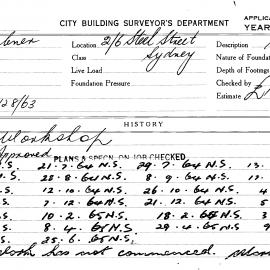 CITY BUILDING SURVEYOR'S DEPARTMENT APPLIC
YEAR
Location 2/6 Steel Street Description
Class Sydney Nature of Foundat
Live Load Depth of Footings
Foundation Pressure Checked by
128/63 Estimate £1
HISTORY
Workshop
Approved PLANS & SPECN. ON JOB CHECKED
S. 21.7.64 N.S. 29.7.64 N.S. 13.
S. 28.8.64 N.S. 8.9.64 N.S. 17.
S. 12.10.64 N.S. 26.10.64 N.S. 4
S. 7.12.64 N.S. 21.12.64 N.S. 5
S. 10.2.65 N.S. 18.2.65 N.S. 3
S. 8.4.65 N.S. 29.4.65 N.S. 9
S. 25.6.65 N.S.
has not commenced.